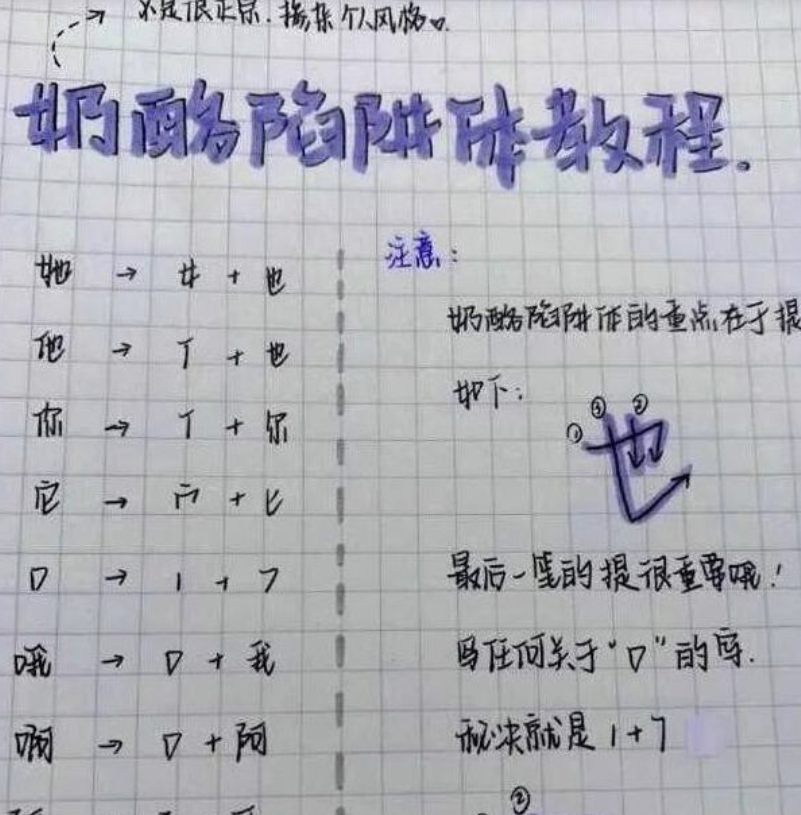 不是很正宗.掺杂个人风格
奶酪陷阱体教程.
她 → 女 + 也
他 → 亻 + 也
你 → 亻 + 尔
它 → 宀 + 匕
口 → 1 + 7
哦 → 口 + 我
啊 → 口 + 阿
注意:
奶酪陷阱体的重点在于提
如下:
① ③ ②
也
最后一笔的提很重要哦!
写任何关于“口”的字.
秘决就是 1+7
②